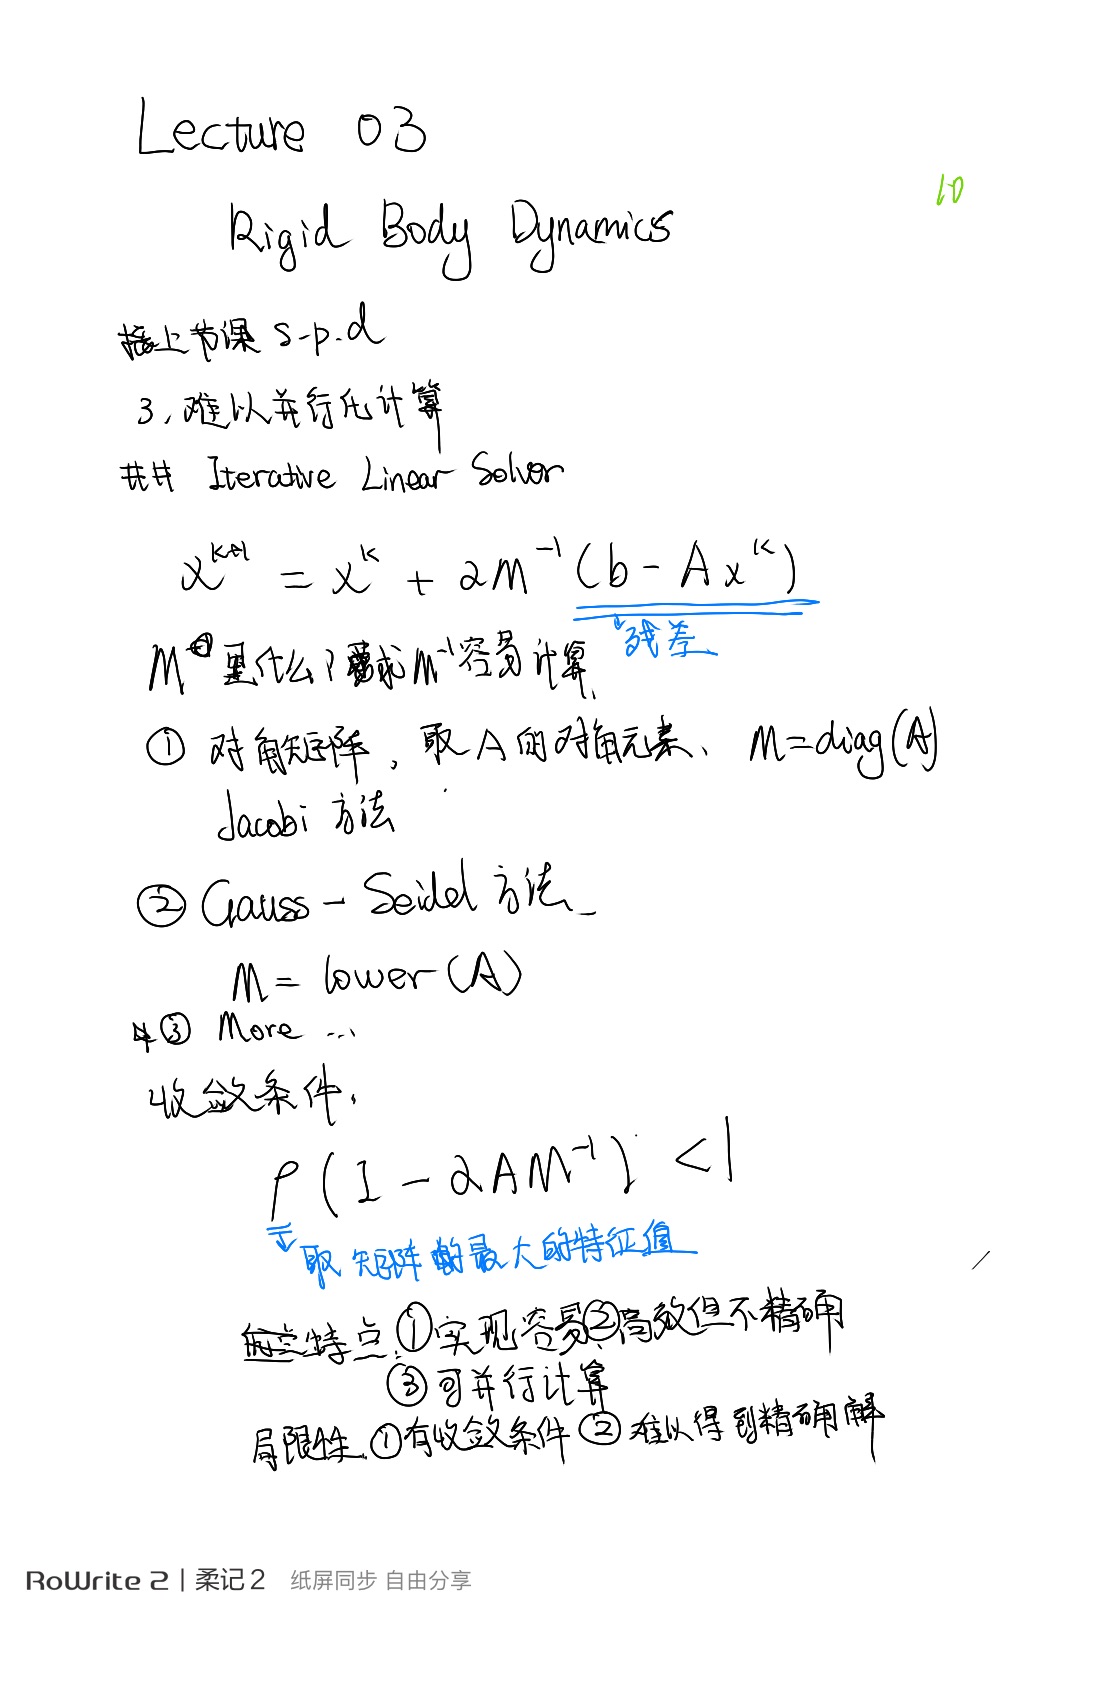 Lecture 03
10
Rigid Body Dynamics
接上节课 s.p.d
3. 难以并行化计算
## Iterative Linear Solver
x^{k+1} = x^k + αM^{-1}(b - Ax^k)
残差
M 是什么?要求M^{-1}容易计算
① 对角矩阵, 取A的对角元素、M=diag(A)
Jacobi 方法
② Gauss-Seidel 方法
M = lower(A)
③ More ...
收敛条件.
ρ(I - αAM^{-1}) < 1
取矩阵的最大的特征值
特点:①实现容易②高效但不精确
③可并行计算
局限性 ①有收敛条件 ②难以得到精确解
RoWrite 2 | 柔记 2 纸屏同步 自由分享